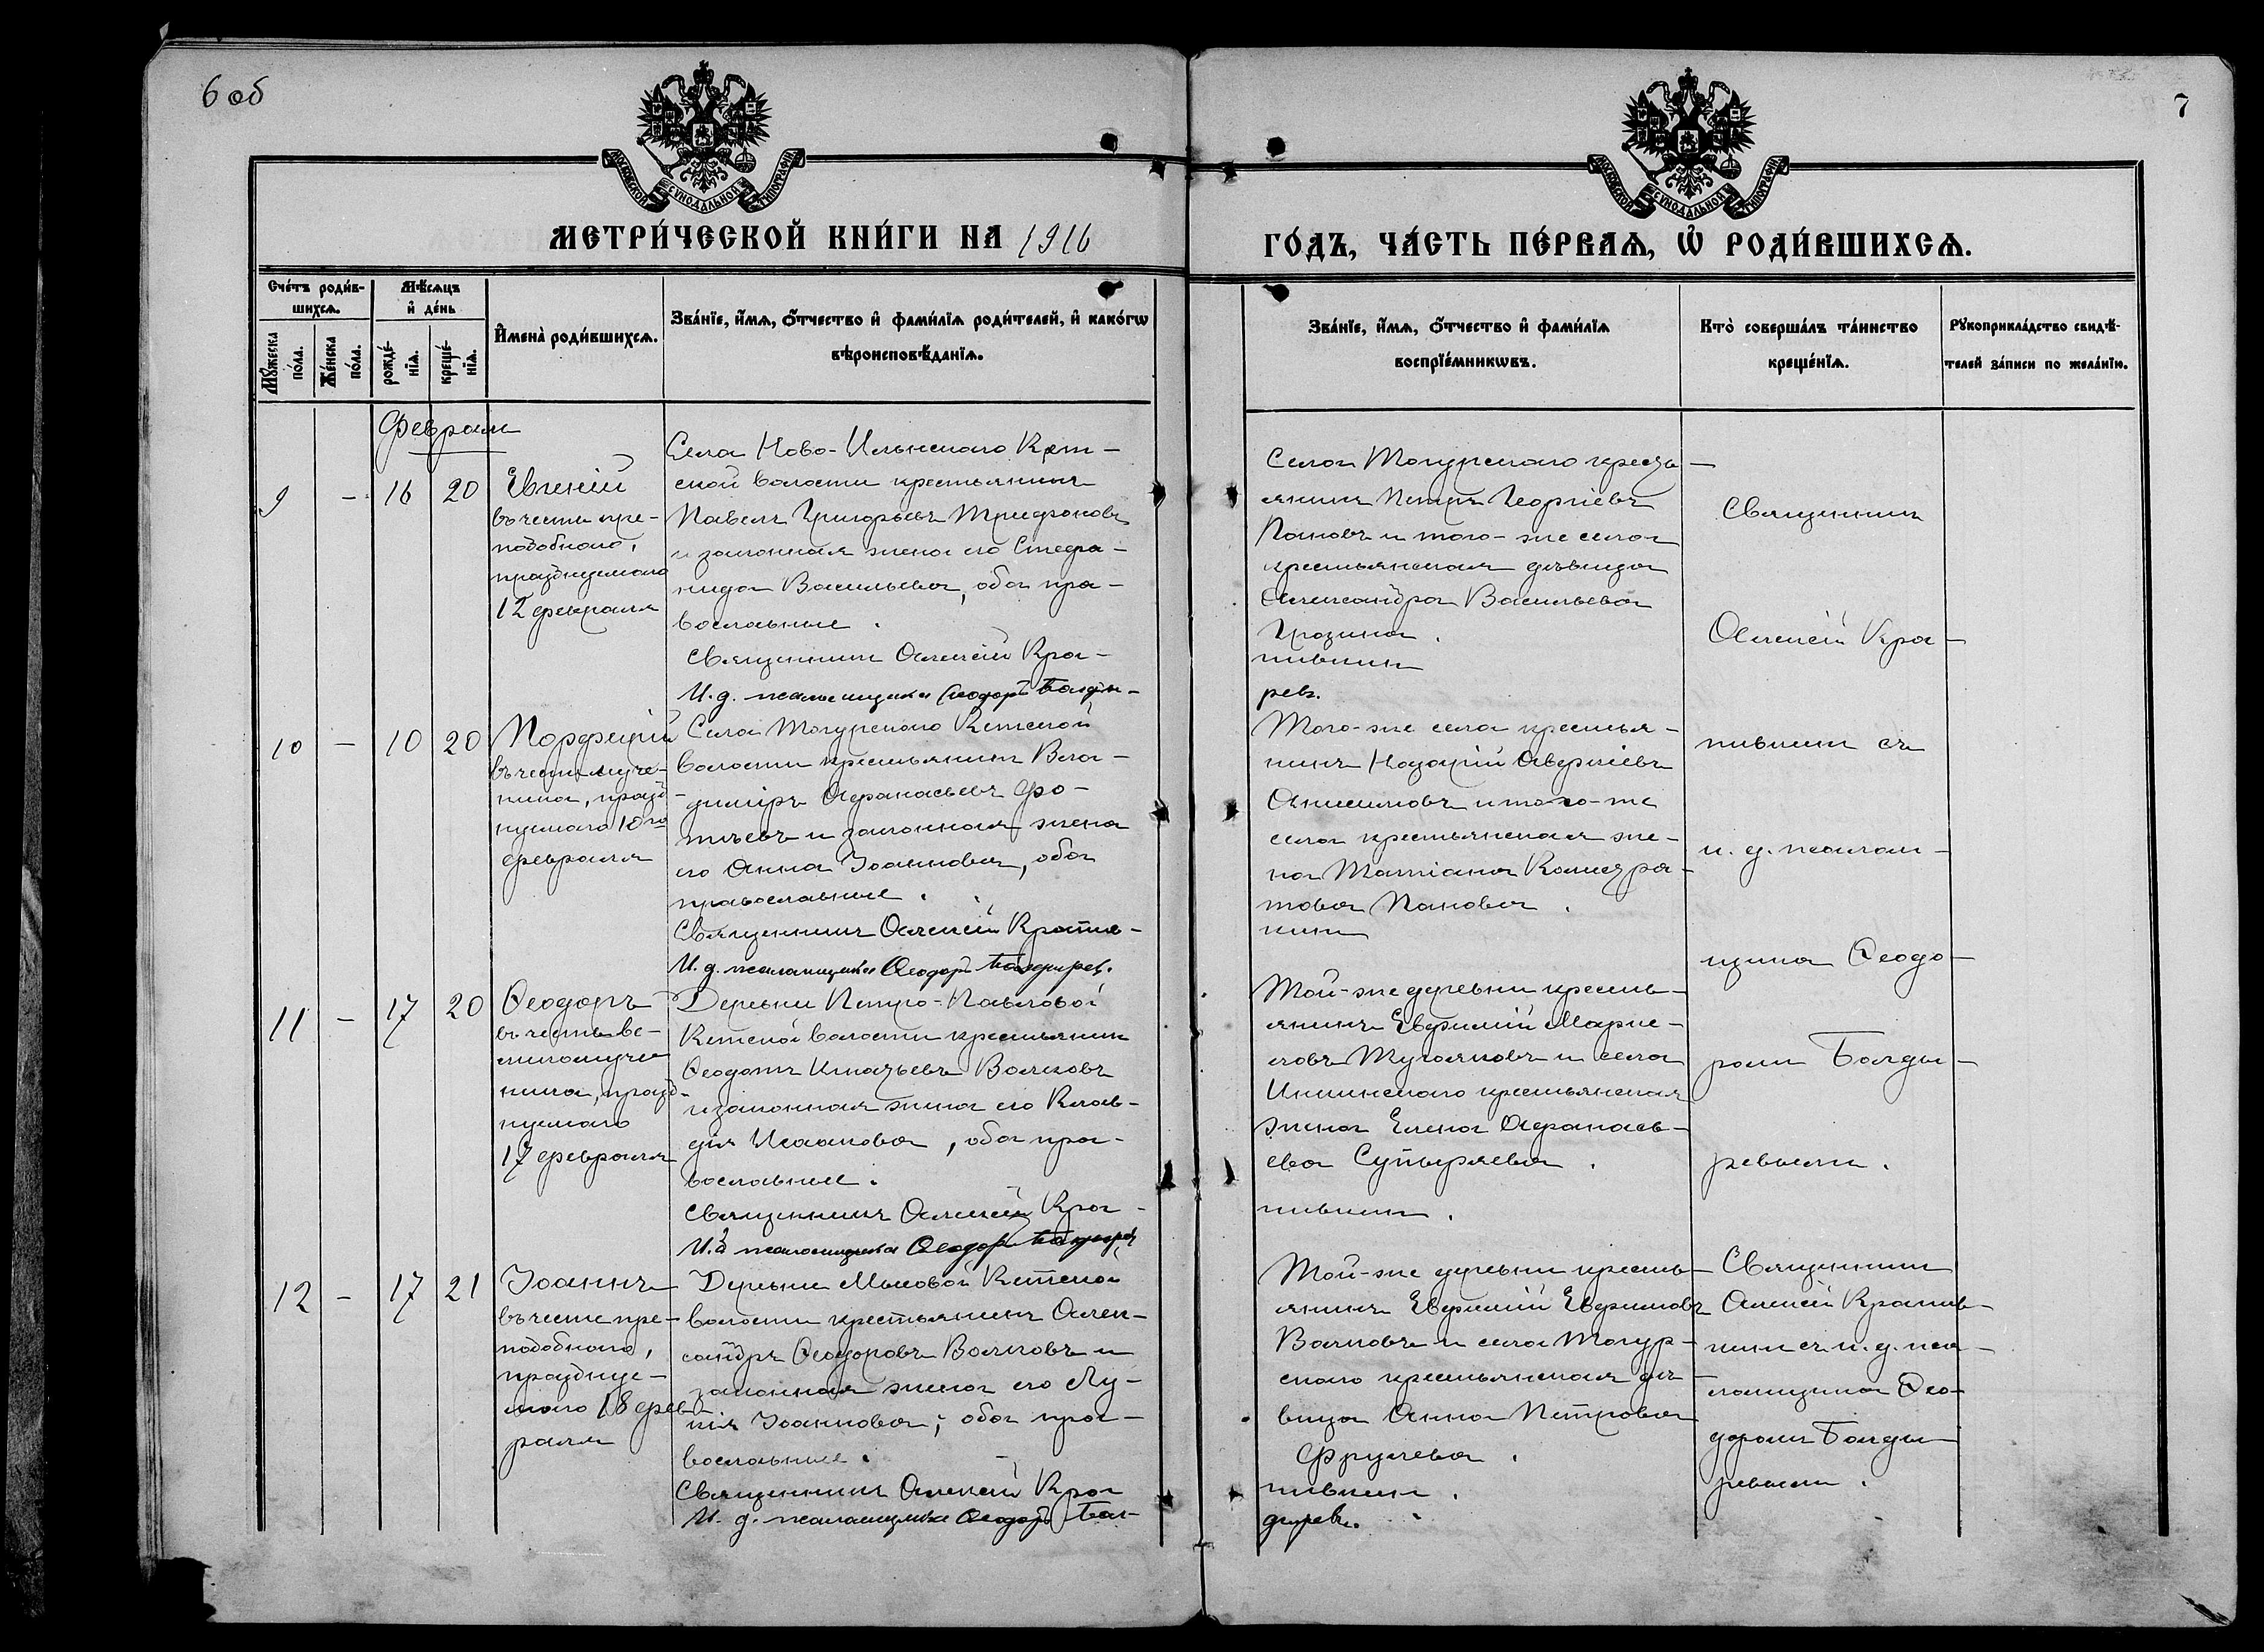 6 об
7
МОСКОВСКОЙ СУНОДАЛЬНОЙ ТИПОГРАФІИ
МОСКОВСКОЙ СУНОДАЛЬНОЙ ТИПОГРАФІИ
МЕТРИ́ЧЕСКОЙ КНИ́ГИ НА 1916
ГО́ДЪ, ЧА́СТЬ ПЕ́РВАѦ, Ѡ РОДИ́ВШИХСѦ.
Сче́тъ роди́в-
шихсѧ.
Мѣ́сѧцъ
и҆ де́нь
Му́жеска
по́ла.
Же́нска
по́ла.
рожде́-
нїѧ.
креще́-
нїѧ.
И҆мена̀ роди́вшихсѧ.
Зва́нїе, и҆́мѧ, ѻ҆́тчество и҆ фами́лїѧ роди́телей, и҆ како́гѡ
вѣроисповѣ́данїѧ.
Зва́нїе, и҆́мѧ, ѻ҆́тчество и҆ фами́лїѧ
воспрїе́мникѡвъ.
Кто̀ соверша́лъ та́инство
креще́нїѧ.
Рꙋкоприкла́дство свидѣ́-
телей за́писи по жела́нїю.
Февраль
9 - 16 20
Евгеній
въ честь пре-
подобного,
празднуемаго
12 февраля
Села Ново-Ильинскаго Кет-
ской волости крестьянинъ
Павелъ Григорьевъ Трифоновъ
и законная жена его Стефа-
нида Васильева, оба пра-
вославные.
Священникъ Алексій Кра-
И.д. псаломщика Ѳеодоръ Болды-
Села Тогурскаго кресть-
янинъ Петръ Георгіевъ
Пановъ и того-же села
крестьянская дѣвица
Александра Васильева
пивкин
ревъ.
Священникъ
Алексій Кра-
пивкин съ
и. д. псалом-
щика Ѳеодо-
ромъ Болды-
ревымъ.
10 - 10 20
Порфирій
въ честь муче-
ника, празд-
нуемаго 10го
февраля
Села Тогурскаго Кетской
волости крестьянинъ Вла-
диміръ Аѳанасьевъ Фо-
тѣевъ и законная жена
его Анна Іоаннова, оба
православные.
Священникъ Алексій Крапив-
И.д. псаломщика Ѳеодоръ Болдырев.
Того-же села крестья-
нинъ
Анисимовъ и того-же
села крестьянская же-
на Татіана
това Панова.
кин
11 - 17 20
Ѳеодоръ
въ честь ве-
ликомуче-
ника, празд-
нуемаго
17 февраля
Деревни Петро-Павловой
Кетской волости крестьянинъ
Ѳеодотъ Игнатьевъ Волковъ
и законная жена его Клав-
дія Исаакова, оба пра-
вославные.
Священникъ Алексій Кра-
И.д. псаломщика Ѳеодоръ Болдырев
Той-же деревни кресть-
янинъ Евфимій
и села
Инкинскаго крестьянская
жена Елена Аѳанась-
ева
пивкин.
12 - 17 21
Іоаннъ
въ честь пре-
подобнаго,
праздну-
емаго 18 фев-
раля
Деревни Мысовой Кетской
волости крестьянинъ Алек-
сандръ Ѳеодоровъ Волковъ и
законная жена его Лу-
кія Іоаннова, оба пра-
вославные.
Священникъ Алексій Кра
И. д. псаломщика Ѳеодоръ Бол-
Той-же деревни кресть-
янинъ Евфимій Евфимовъ
Волковъ и села Тогур-
скаго крестьянская дѣ-
вица Анна Петрова
Фролева.
пивкин.
дырев.
Священникъ
Алексій Крапив-
кин съ и. д. пса-
ломщика Ѳео-
доромъ Болды-
ревымъ.